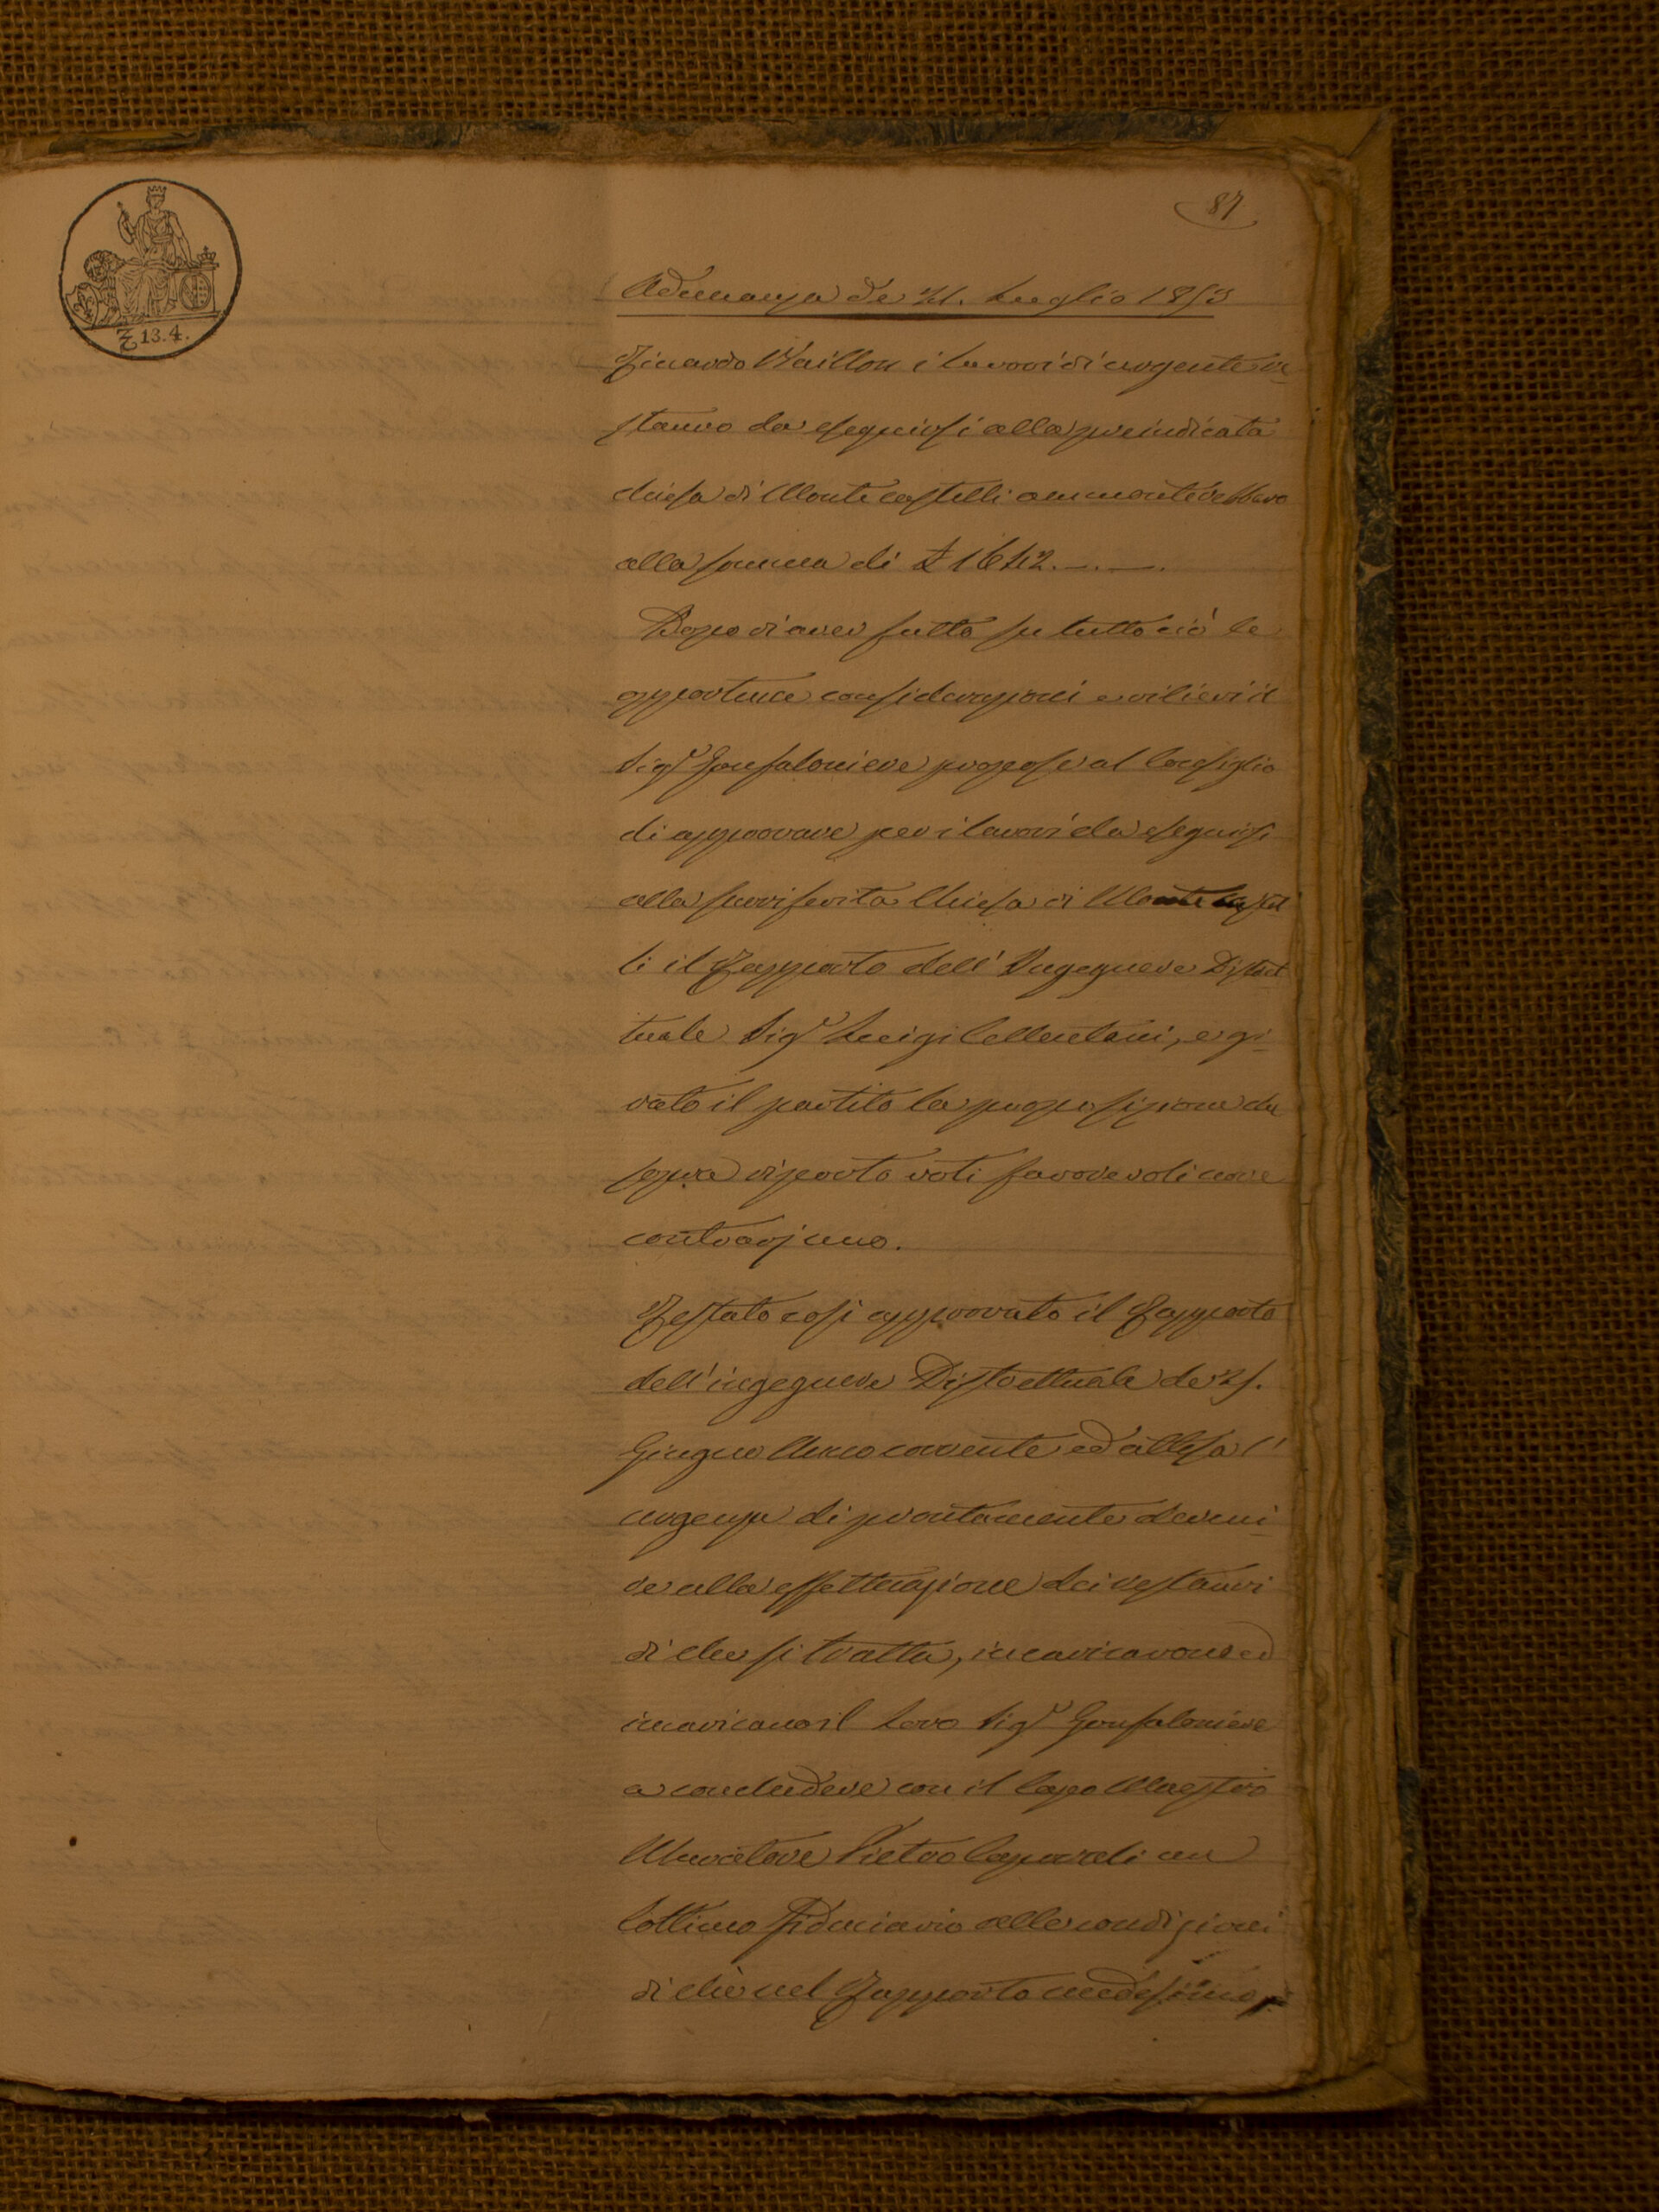 87
Adunanza de' 21. Luglio 1853
Riccardo Vaillon i lavori di urgente re-
stauro da eseguirsi alla preindicata
chiesa di Monte castelli ammonterebbero
alla somma di £ 1642.—.—.
Dopo di aver fatto su tutto ciò le
opportune considerazioni e rilievi il
Sigr Gonfaloniere propose al Consiglio
di approvare per i lavori da eseguirsi
alla surriferita Chiesa di Monte Castel
li il Rapporto dell' Ingegnere Distret
tuale Sigr Luigi Bellantani, e gi-
rato il partito la proposizione di
sopra riportò voti favorevoli nove
contrarj uno.
Restato così approvato il Rapporto
dell' ingegnere Distrettuale de' 25.
Giugno Anno corrente ed attesa l'
urgenza di prontamente deveni-
re alla effettuazione dei restauri
di che si tratta, incaricarono ed
incaricano il Loro Sigr Gonfaloniere
a concludere con il Capo Maestro
Muratore Pietro un
Cottimo Fiduciario alle condizioni
di che nel Rapporto medesimo,
£ 13.4.